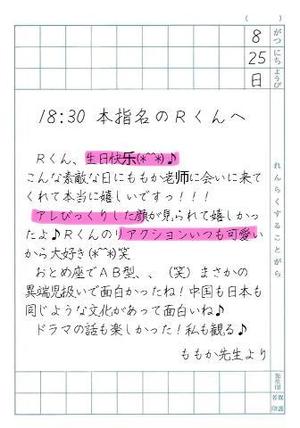 (　　)
8 がつ
25 にち
日 ようび
れんらくすることがら
18:30 本指名のRくんへ
Rくん、生日快乐(*^^*)♪
こんな素敵な日にももか老师に会いに来て
くれて本当に嬉しいですっ!!!
アレびっくりした顔が見られて嬉しかっ
たよ♪Rくんのリアクションいつも可愛い
から大好き(*^^*)笑
おとめ座でAB型、、(笑)まさかの
異端児扱いで面白かったね!中国も日本も
同じような文化があって面白いね♪
ドラマの話も楽しかった!私も観る♪
ももか先生より